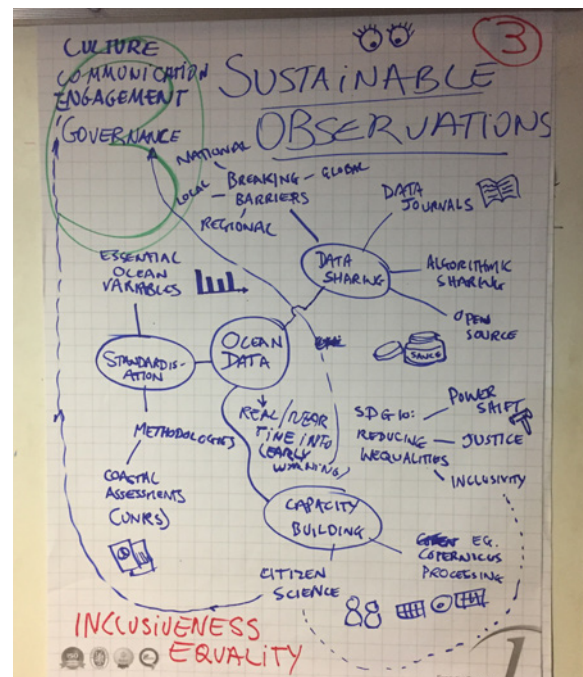 CULTURE
COMMUNICATION
ENGAGEMENT
GOVERNANCE
3
SUSTAINABLE
OBSERVATIONS
NATIONAL
LOCAL
BREAKING
BARRIERS
GLOBAL
REGIONAL
DATA
JOURNALS
DATA
SHARING
ALGORITHMIC
SHARING
OPEN
SOURCE
SAUCE
ESSENTIAL
OCEAN
VARIABLES
OCEAN
DATA
STANDARDIS-
ATION
METHODOLOGIES
COASTAL
ASSESSMENTS
REAL/NEAR
TIME INTO
(EARLY
WARNING)
SDG10:
REDUCING
INEQUALITIES
POWER
SHIFT
JUSTICE
INCLUSIVITY
CAPACITY
BUILDING
EG.
COPERNICUS
PROCESSING
CITIZEN
SCIENCE
INCLUSIVENESS
EQUALITY